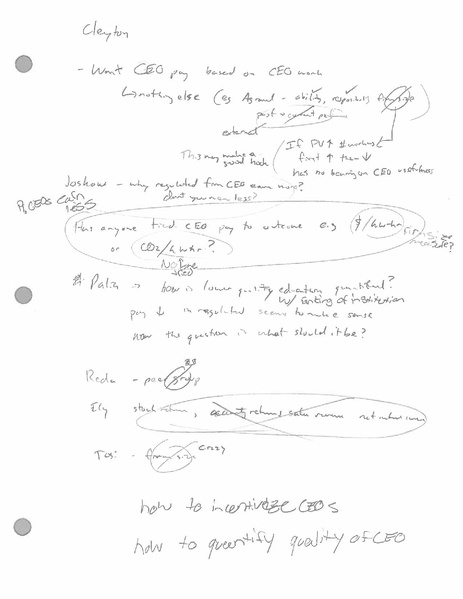 Cleyton
- Want CEO pay based on CEO work
↳ nothing else (eg Agrawal - ability, responsibility firm size
past + current perform
external
This may make a good hook
(If PV ↑ # workers ↓
firm ↑ then ↓
has no bearing on CEO usefulness
Joskow - why regulated firm CEO earn more?
don't you mean less?
R. CEOs earn LESS
Has anyone tried CEO pay to outcome e.g. $/kwhr
or CO2/kwhr?
firm size measure?
No
Palia → how is lower quality education quantified?
w/ ranking of institution
pay ↓ in regulated seems to make sense
now the question is what should it be?
Reda - peer group
Ely stock return, sales revenue net return
Tosi - firm size crazy
how to incentivize CEOs
how to quantify quality of CEO